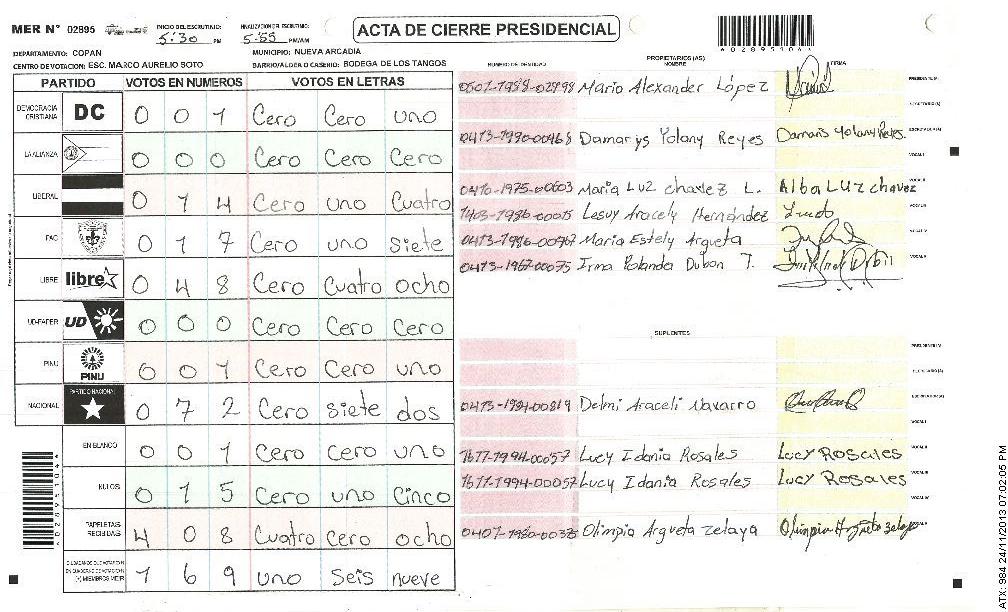 MER N° 02895
INICIO DEL ESCRUTINIO: 5:30 PM
FINALIZACION DEL ESCRUTINIO: 5:55 PM/AM
ACTA DE CIERRE PRESIDENCIAL
DEPARTAMENTO: COPAN
MUNICIPIO: NUEVA ARCADIA
CENTRO DE VOTACION: ESC. MARCO AURELIO SOTO
BARRIO/ALDEA O CASERIO: BODEGA DE LOS TANGOS
PARTIDO VOTOS EN NUMEROS VOTOS EN LETRAS
DEMOCRACIA CRISTIANA DC 0 0 1 Cero Cero uno
LA ALIANZA 0 0 0 Cero Cero Cero
LIBERAL 0 1 4 Cero uno Cuatro
PAC 0 1 7 Cero uno siete
LIBRE libre 0 4 8 Cero Cuatro ocho
UD-FAPER UD 0 0 0 Cero Cero Cero
PINU PINU 0 0 1 Cero Cero uno
NACIONAL PARTIDO NACIONAL 0 7 2 Cero siete dos
EN BLANCO 0 0 1 Cero Cero uno
NULOS 0 1 5 Cero uno Cinco
PAPELETAS RECIBIDAS 4 0 8 Cuatro cero ocho
1 6 9 uno seis nueve
NUMERO DE IDENTIDAD PROPIETARIOS (AS) NOMBRE FIRMA
Mario Alexander López PRESIDENTE(A)
SECRETARIO(A)
0413-1990-00468 Damarys Yolany Reyes Damaris Yolany Reyes. ESCRUTADOR(A)
VOCAL I
0410-1975-00603 Maria Luz chavez L. Alba LUZ chavez VOCAL II
1403-1986-00015 Lesvy Aracely Hernández VOCAL III
Maria Estely Argueta VOCAL IV
0413-1967-00075 Irma Yolanda Dubon T. VOCAL V
SUPLENTES
PRESIDENTE(A)
SECRETARIO(A)
0413-1984-00819 Delmi Araceli Navarro ESCRUTADOR(A)
VOCAL I
1677-1994-00057 Lucy Idania Rosales Lucy Rosales VOCAL II
1677-1994-00057 Lucy Idania Rosales Lucy Rosales VOCAL III
VOCAL IV
Olimpia Argueta Zelaya Olimpia Argueta Zelaya VOCAL V
ATX: 984 24/11/2013 07:02:05 PM